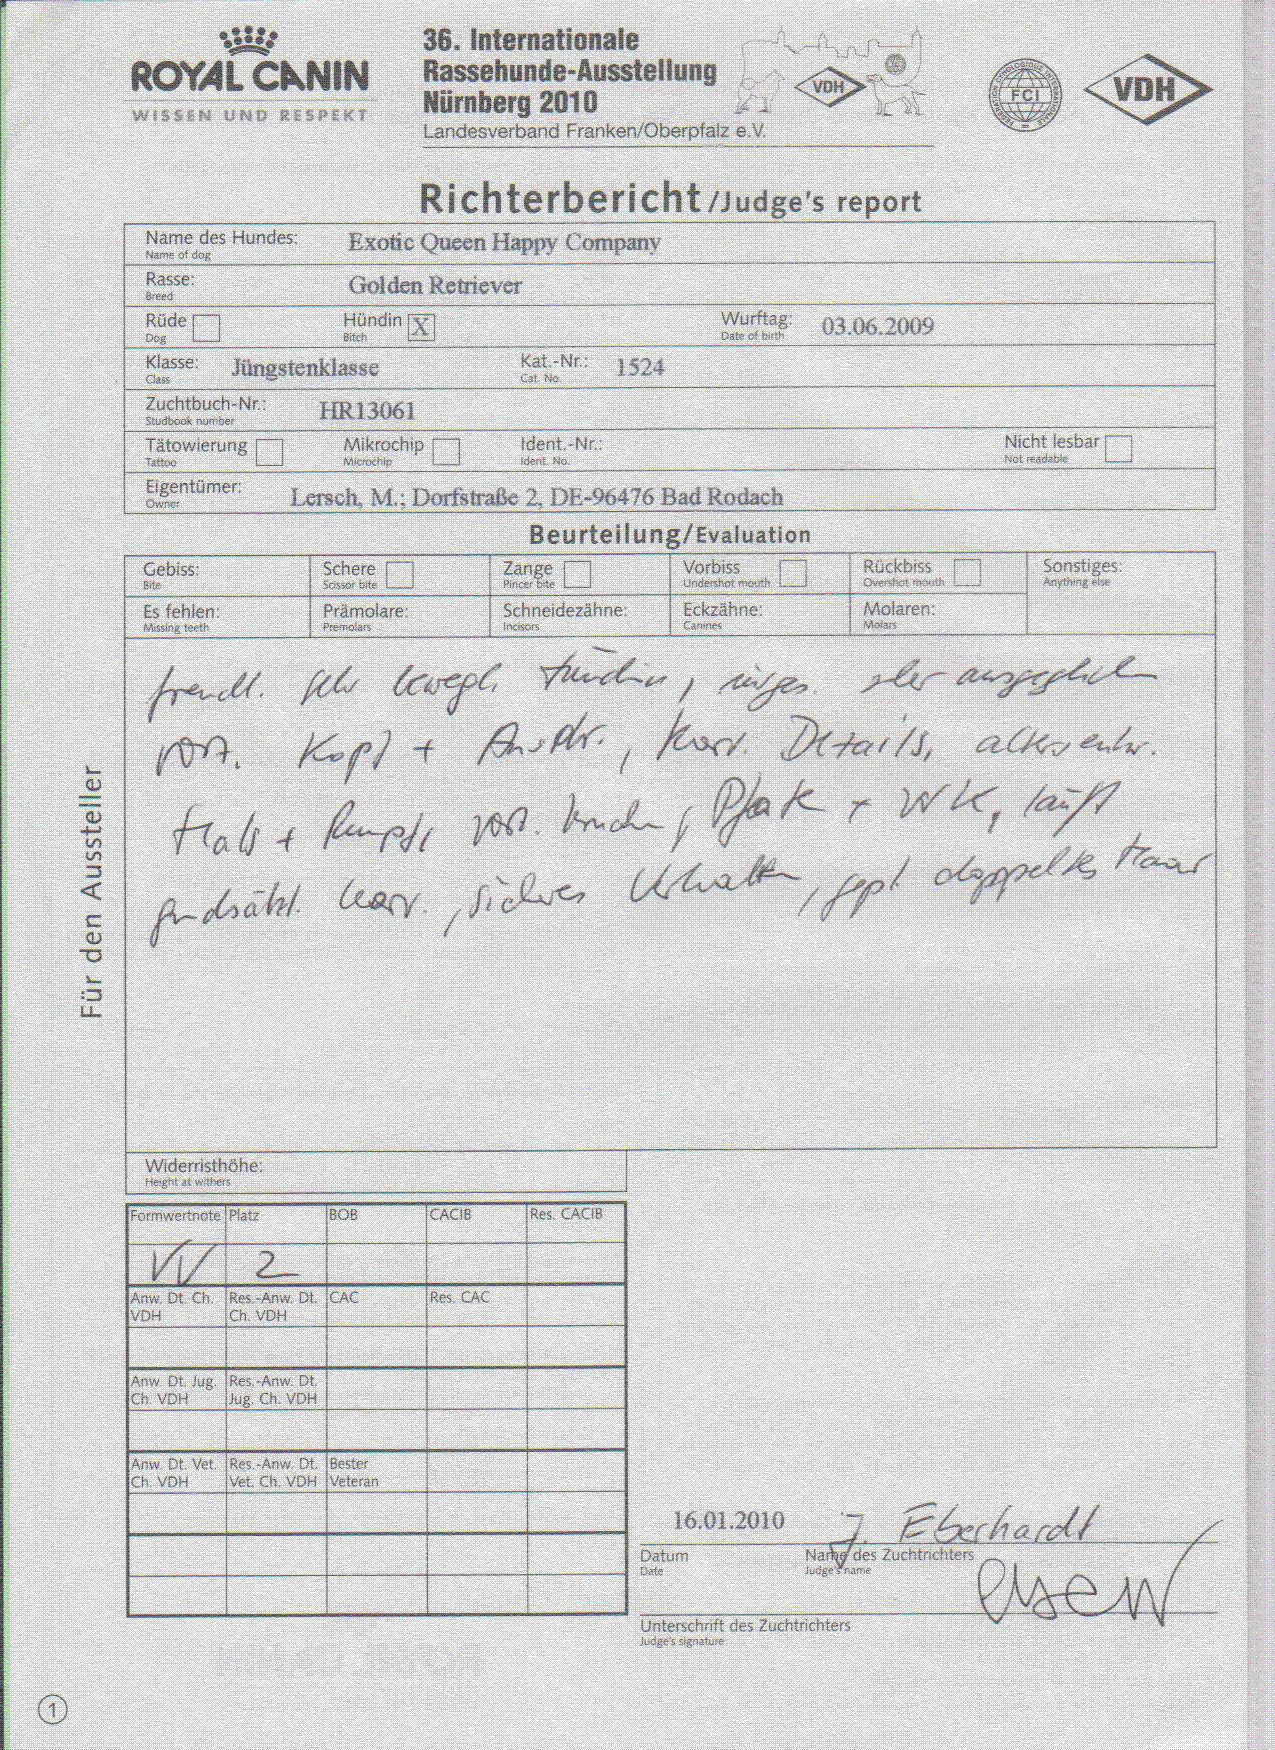 ROYAL CANIN
WISSEN UND RESPEKT
36. Internationale
Rassehunde-Ausstellung
Nürnberg 2010
Landesverband Franken/Oberpfalz e.V.
VDH
FCI
VDH
Richterbericht/Judge's report
Name des Hundes: Exotic Queen Happy Company
Name of dog
Rasse: Golden Retriever
Breed
Rüde Hündin X Wurftag: 03.06.2009
Dog Bitch Date of birth
Klasse: Jüngstenklasse Kat.-Nr.: 1524
Class Cat. No.
Zuchtbuch-Nr.: HR13061
Studbook number
Tätowierung Mikrochip Ident.-Nr.: Nicht lesbar
Tattoo Microchip Ident. No. Not readable
Eigentümer: Lersch, M.; Dorfstraße 2, DE-96476 Bad Rodach
Owner
Beurteilung/Evaluation
Gebiss: Schere Zange Vorbiss Rückbiss Sonstiges:
Bite Scissor bite Pincer bite Undershot mouth Overshot mouth Anything else
Es fehlen: Prämolare: Schneidezähne: Eckzähne: Molaren:
Missing teeth Premolars Incisors Canines Molars
freundl. sehr bewegl. Hündin, insges. sehr
Kopf + Ausdr., korr. Details, altersentspr.
Hals + Rumpf, Pfote + WK, läuft
korr., sicheres Verhalten, gepfl. doppeltes Haar
Für den Aussteller
Widerristhöhe:
Height at withers
Formwertnote Platz BOB CACIB Res. CACIB
VV 2
Anw. Dt. Ch. Res.-Anw. Dt. CAC Res. CAC
VDH Ch. VDH
Anw. Dt. Jug. Res.-Anw. Dt.
Ch. VDH Jug. Ch. VDH
Anw. Dt. Vet. Res.-Anw. Dt. Bester
Ch. VDH Vet. Ch. VDH Veteran
16.01.2010 J. Eberhardt
Datum Name des Zuchtrichters
Date Judge's name
Unterschrift des Zuchtrichters
Judge's signature
1